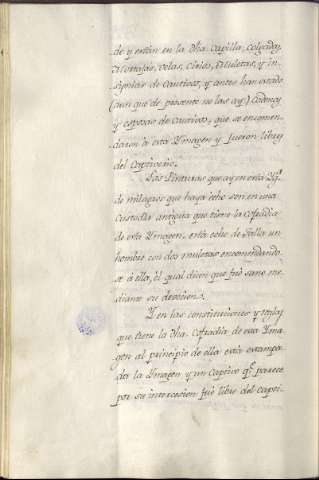 de y están en la dha. Capilla, colgadas,
Mortajas, velas, Cirios, Muletas, y in-
signias de Cautivos, y antes han estado
(aun que de presente no las ay) Cadenas
y esposas de Cautivos, que se encomen-
daron à esta Ymagen y fueron libres
del Captiverio.
Las Pinturas que ay en esta Ygª
de milagros que haya echo son en una
Custodia antigua que tiene la cofradia
de esta Ymagen, está echo de talla un
hombre con dos muletas encomendando
se à ella, el qual dicen que fué sano me-
diante su devocion.
Y en las constituciones y reglas
que tiene la dha. Cofradia de esta Yma-
gen al principio de ella está estampa-
da la Ymagen y un Captivo q.e parece
por su intercesion fué libre del Capti-